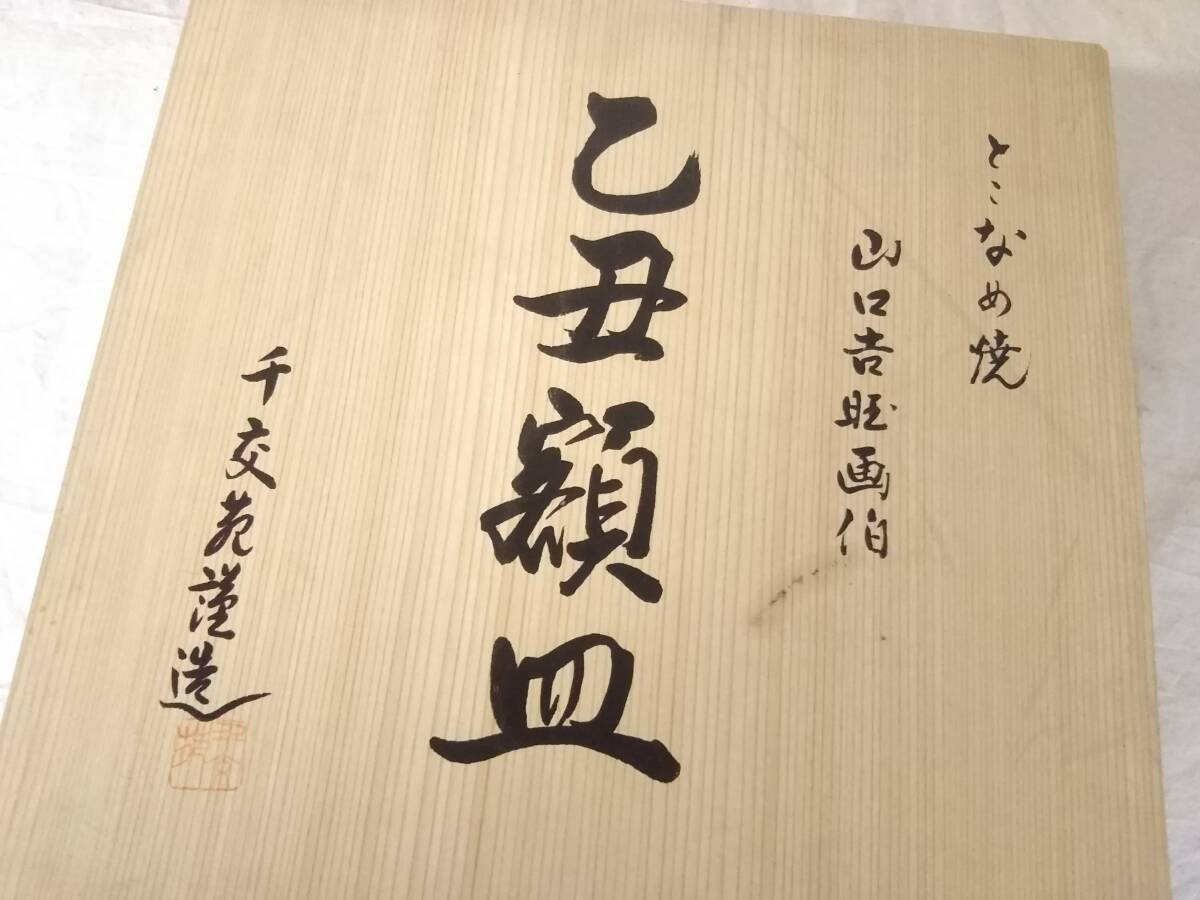 とこなめ焼
山口吉旺画伯
乙丑額皿
千交苑謹造